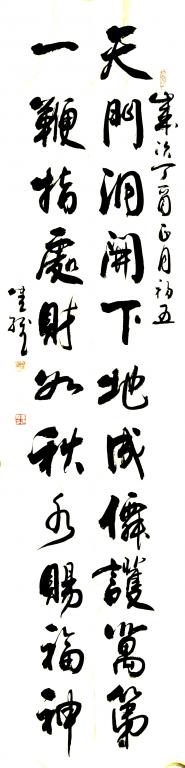 歲次丁酉正月初五
天門洞開下地成僊護萬第
一鞭指處財如秋水賜福神